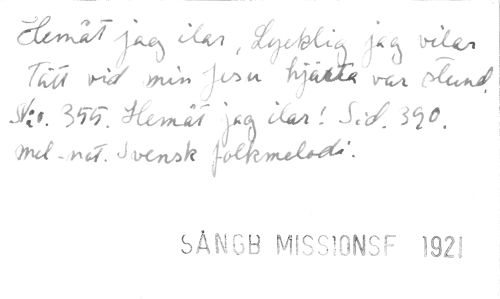 Hemåt jag ilar, Lycklig jag vilar
Tätt vid min Jesu hjärta var stund.
No. 355. Hemåt jag ilar! Sid. 390.
mel-not. Svensk folkmelodi.
SÅNGB MISSIONSF 1921